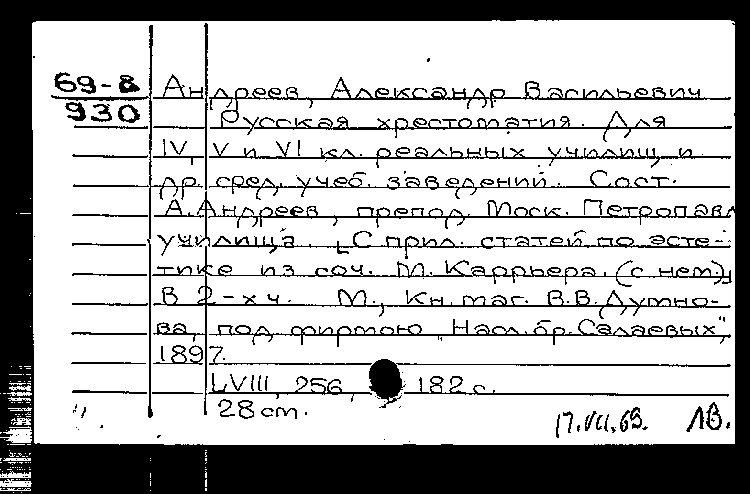 69-8 Андреев, Александр Васильевич
930 Русская хрестоматия. Для
IV, V и VI кл. реальных училищ и
др. сред. учеб. заведений. Сост.
А. Андреев, препод. Моск. Петропавл
училища. [С прил. статей по эсте-
тике из соч. М. Каррьера. (с нем)]
В 2-х ч. М., Кн. маг. В.В. Думно-
ва, под фирмою „Насл. бр. Салаевых",
1897.
LVIII, 256, 182 с.
28 см.
17.VII.69. ЛВ.